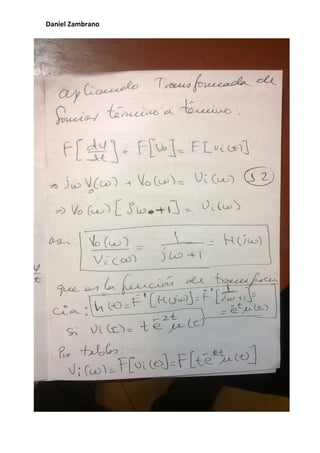 Daniel Zambrano
aplicando Transformada de
Fourier término a término:
F[dy/dt] + F[Vo] = F[Vi(t)]
⇒ jω Vo(ω) + Vo(ω) = Vi(ω) (1.2)
⇒ Vo(ω)[jω+1] = Vi(ω)
así: Vo(ω)/Vi(ω) = 1/(jω+1) = H(jω)
que es la función de transferen
cia; h(t) = F⁻¹[H(jω)] = F⁻¹[1/(jω+1)] =
= e⁻ᵗ μ(t)
Si Vi(t) = t e^-2t μ(t)
Por tablas:
Vi(ω) = F[Vi(t)] = F[t e^-2t μ(t)]